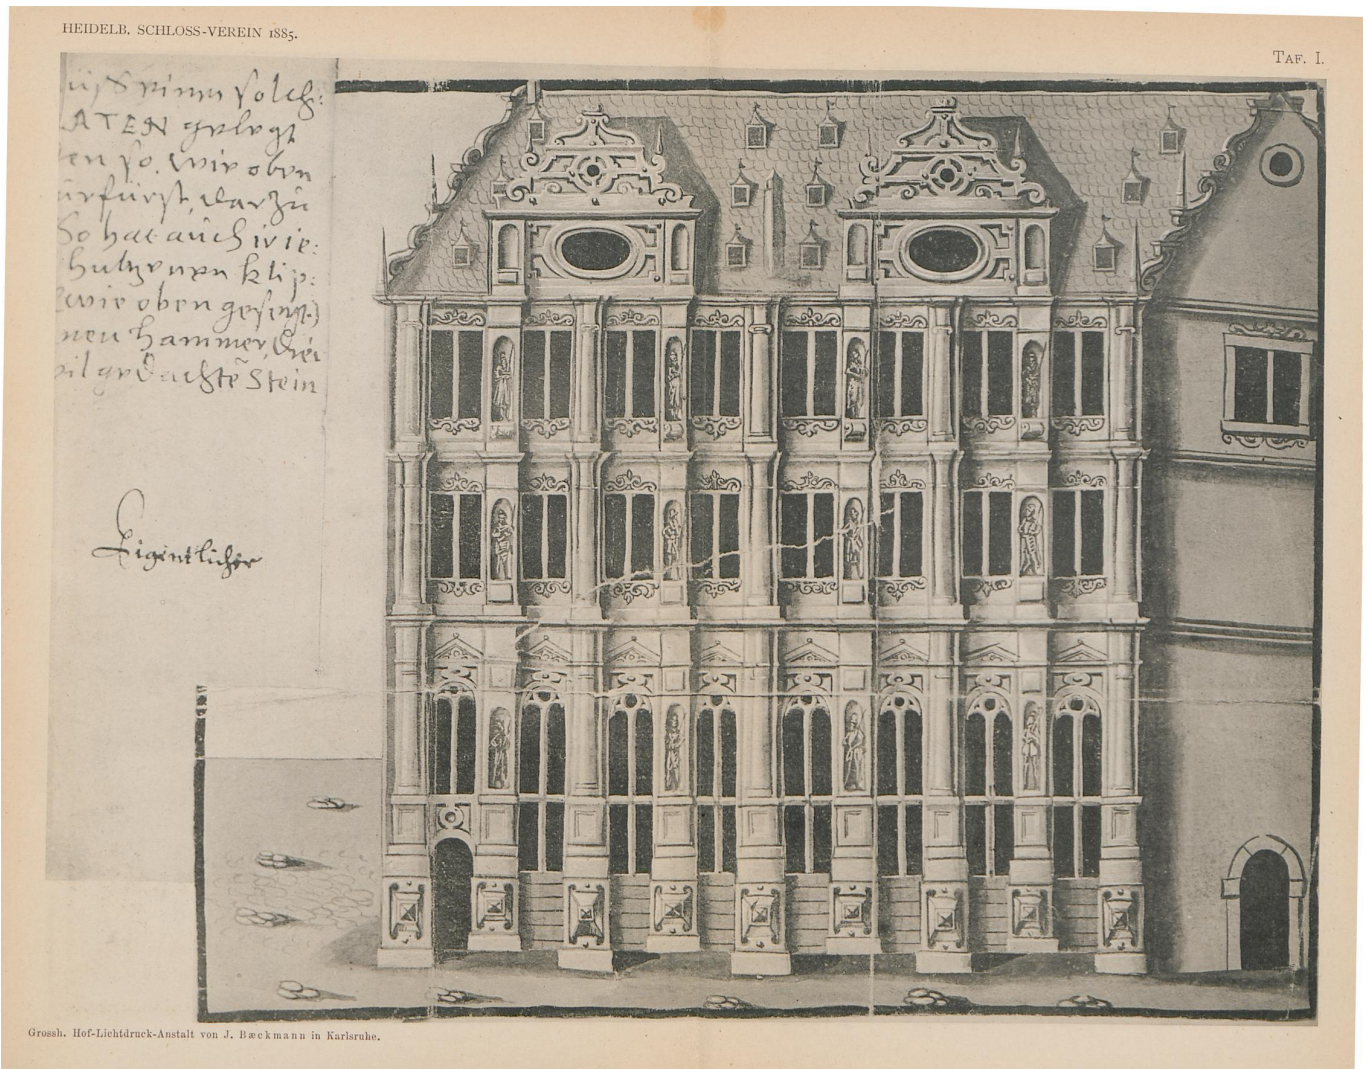 HEIDELB. SCHLOSS-VEREIN 1885.
TAF. I.
solch:
ATEN gelegt
so, wie oben
ürfürst, darzü
So hat aüch wie:
hültzenen klip:
(wie oben gesagt)
nen hammer, drei
gedachte Stein
Eigentlicher
Grossh. Hof-Lichtdruck-Anstalt von J. Bæckmann in Karlsruhe.